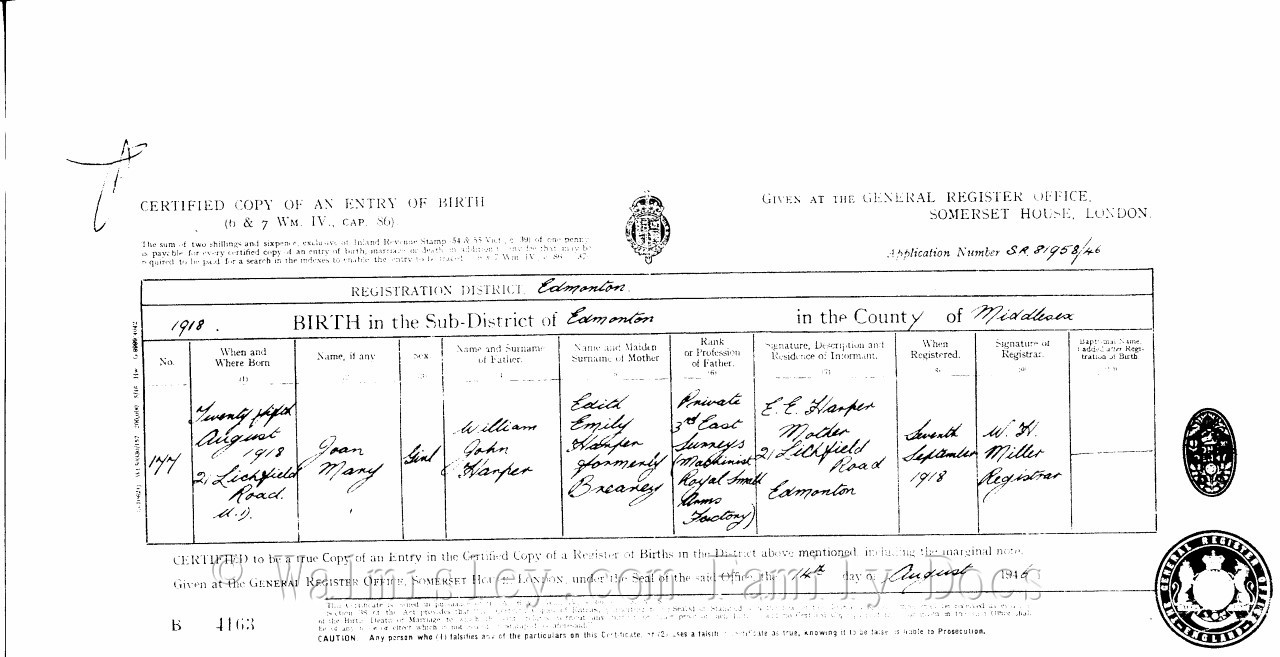 CERTIFIED COPY OF AN ENTRY OF BIRTH
(6 & 7 WM. IV., CAP. 86)
The sum of two shillings and sixpence, exclusive of Inland Revenue Stamp, 54 & 55 Vict., c. 39) of one penny,
is payable for every certified copy of an entry of birth, marriage or death, in addition
required to be paid for a search in the indexes to enable the entry to be traced
GIVEN AT THE GENERAL REGISTER OFFICE,
SOMERSET HOUSE, LONDON.
Application Number S.R. 81958/46
REGISTRATION DISTRICT, Edmonton.
1918. BIRTH in the Sub-District of Edmonton in the County of Middlesex
No.
When and
Where Born
(1)
Name, if any
Sex
Name and Surname
of Father.
Name and Maiden
Surname of Mother
Rank
or Profession
of Father.
(6)
Signature, Description and
Residence of Informant.
(7)
When
Registered.
Signature of
Registrar.
Baptismal Name,
if added after Regis-
tration of Birth.
177
Twenty fifth
August
1918
21 Lichfield
Road.
U.D.
Joan
Mary
Girl
William
John
Harper
Edith
Emily
Harper
formerly
Brearey
Private
3rd East
Surreys
(Machinist
Royal Small
Arms
Factory)
E. E. Harper
Mother
21 Lichfield
Road
Edmonton
Seventh
September
1918
W. H.
Miller
Registrar
CERTIFIED to be a true Copy of an Entry in the Certified Copy of a Register of Births in the District above mentioned, including the marginal note.
Given at the GENERAL REGISTER OFFICE, SOMERSET HOUSE, LONDON, under the Seal of the said Office, the 14th day of August 1946
© walmisley.com Family Docs
B 4163
CAUTION. Any person who (1) falsifies any of the particulars on this Certificate, or (2) uses a falsified certificate as true, knowing it to be false is liable to Prosecution.
THE GENERAL REGISTER OFFICE
ENGLAND